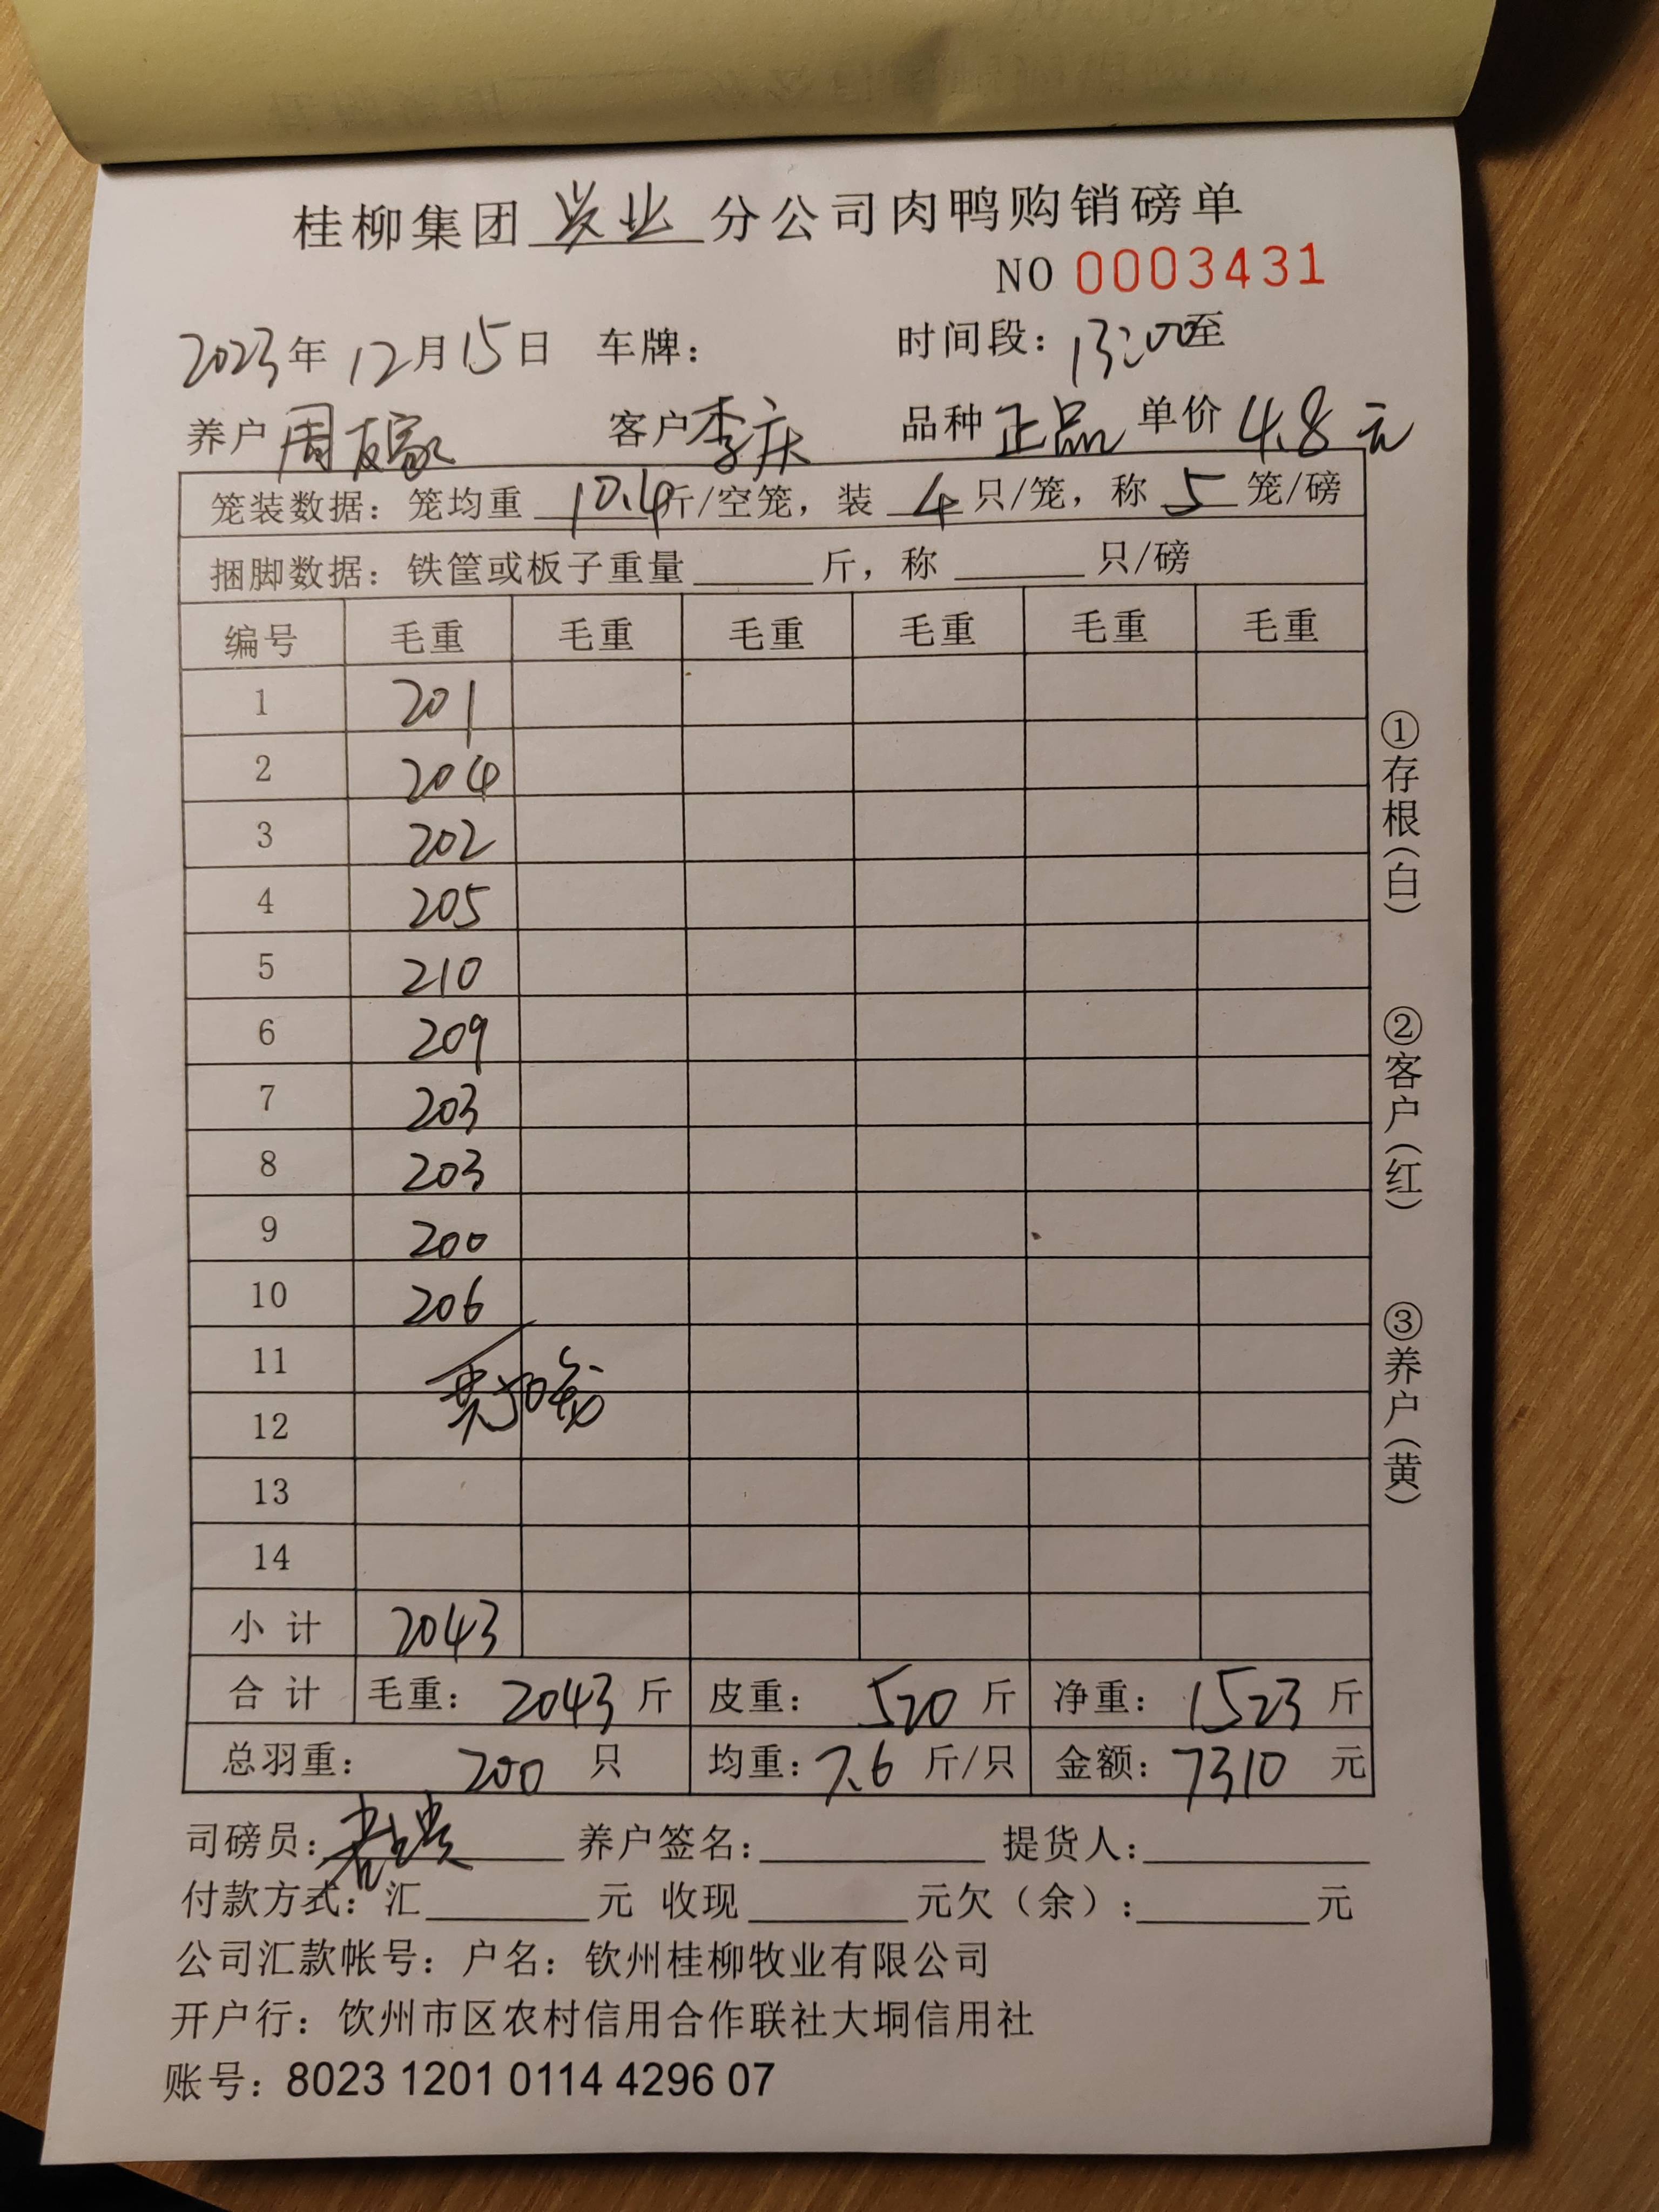 桂柳集团兴业分公司肉鸭购销磅单
NO 0003431
2023年12月15日 车牌： 时间段：13:00至
养户周友家 客户李庆 品种正品 单价4.8元
笼装数据：笼均重10.4斤/空笼，装4只/笼，称5笼/磅
捆脚数据：铁筐或板子重量______斤，称______只/磅
编号 毛重 毛重 毛重 毛重 毛重 毛重
1 201
2 204
3 202
4 205
5 210
6 209
7 203
8 203
9 200
10 206
11
12
13
14
小计 2043
合计 毛重：2043斤 皮重：520斤 净重：1523斤
总羽重：200只 均重：7.6斤/只 金额：7310元
司磅员： 养户签名：______ 提货人：______
付款方式：汇______元 收现______元欠（余）：______元
公司汇款帐号：户名：钦州桂柳牧业有限公司
开户行：饮州市区农村信用合作联社大垌信用社
账号：8023 1201 0114 4296 07
①存根（白）
②客户（红）
③养户（黄）